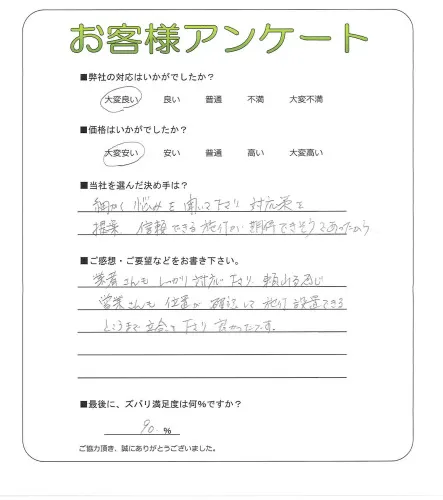 お客様アンケート
■弊社の対応はいかがでしたか?
大変良い 良い 普通 不満 大変不満
■価格はいかがでしたか?
大変安い 安い 普通 高い 大変高い
■当社を選んだ決め手は?
細かく 悩みを 聞いて下さり 対応策を
提案 信頼できる 施行が 期待できそうであったから
■ご感想・ご要望などをお書き下さい。
業者さんも しっかり 対応下さり、頼れる感じ
営業さんも 位置が 確認して 施行 設置できる
ところまで 立合って下さり 良かったです。
■最後に、ズバリ満足度は何%ですか?
90 %
ご協力頂き、誠にありがとうございました。